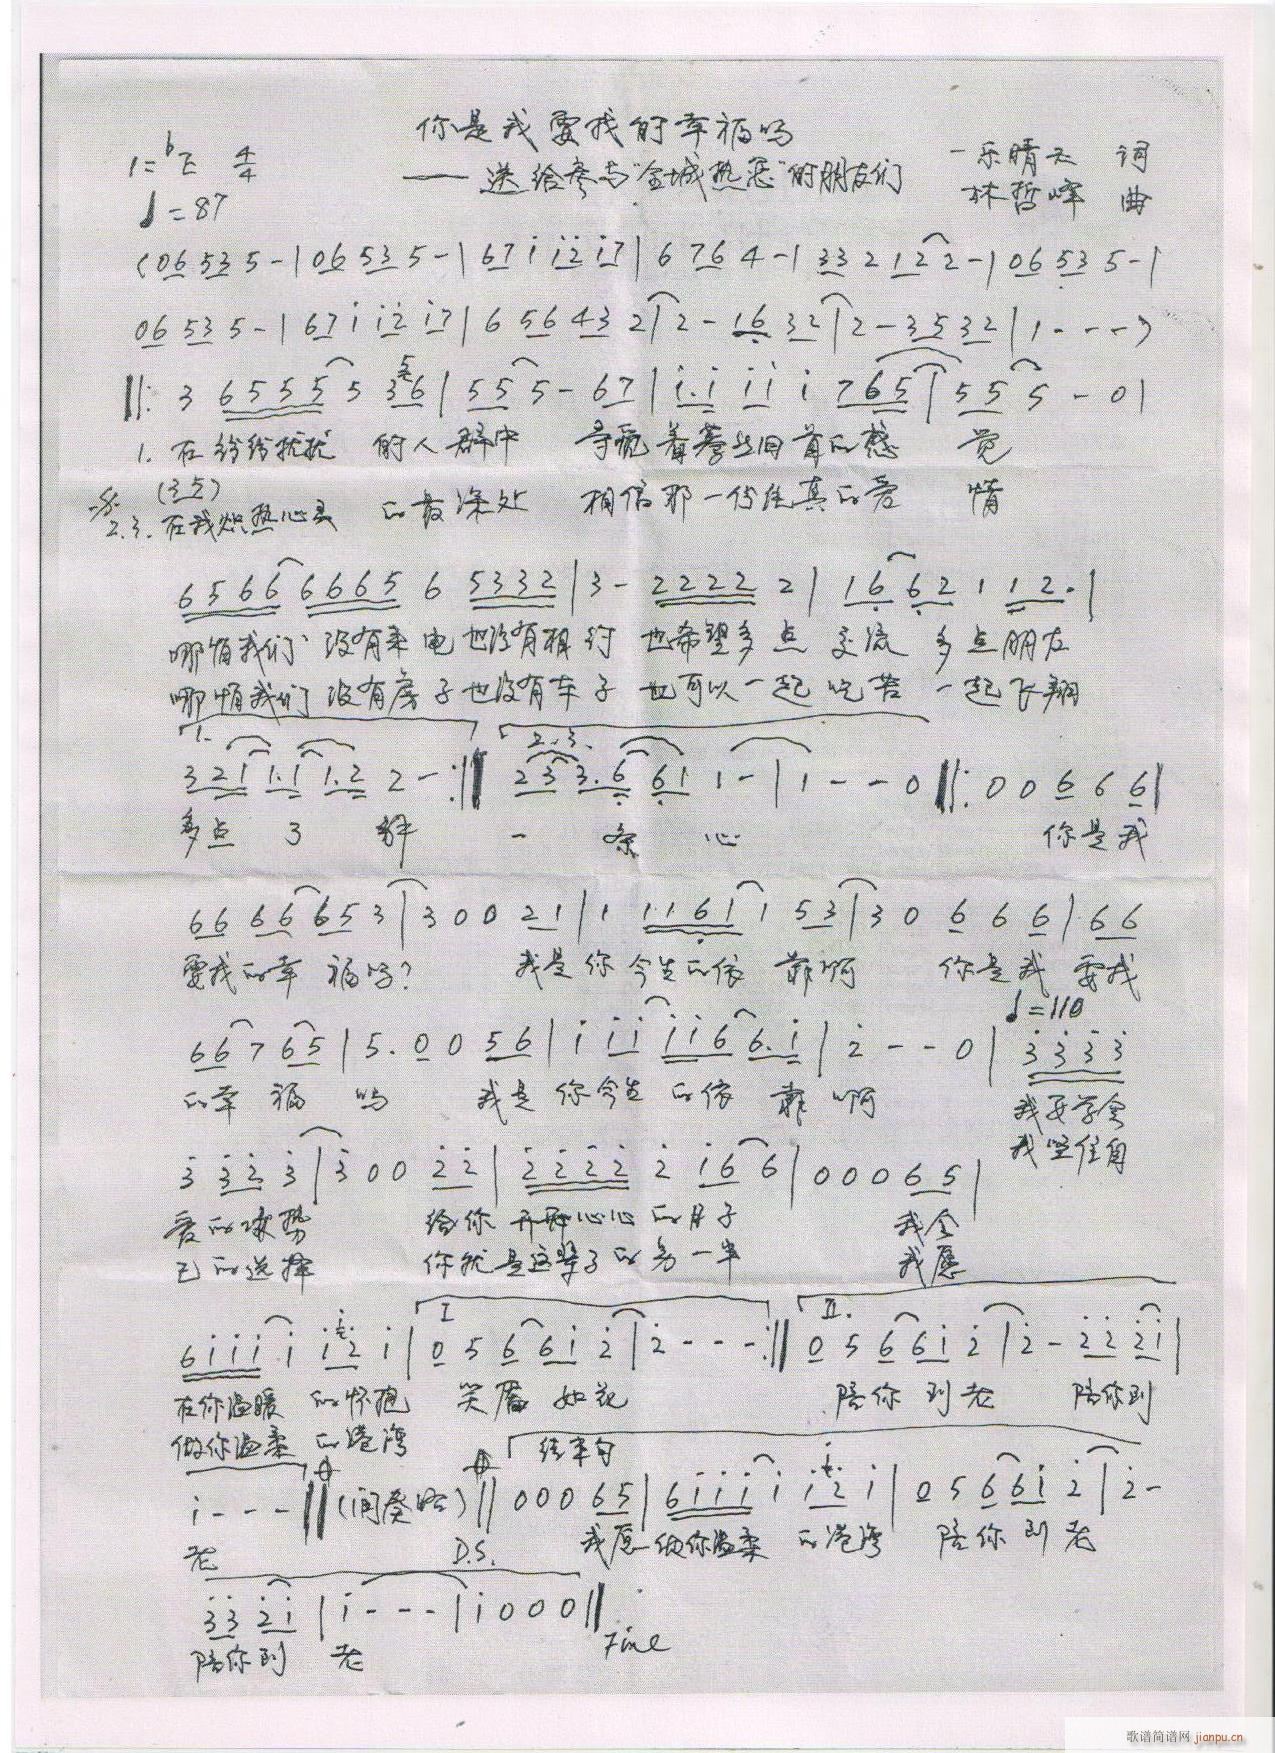 你是我要找的幸福吗
1=ᵇE 4/4
——送给参与"全城热恋"的朋友们
一乐晴天 词
♩=87
林哲峰 曲
(06 535-|06 535-|67 i i2 i7|6 764-|33 2 122-|06 535-|
06 535-|67 i i2 i7|6 56 43 2|2-16 32|2-3532|1---)
‖: 3 6555 5 36|55 5-67|i.i ii i 765|55 5-0|
1. 在纷纷扰扰 的人群中 寻觅着蓦然回首的感 觉
(3点)
2.3. 在我炽热心灵 的最深处 相信那一份纯真的爱 情
6566 6665 6 5332|3-2222 2|16 62 1 12.|
哪怕我们 没有来电也没有相约 也希望多点 交流 多点朋友
哪怕我们没有房子也没有车子 也可以一起吃苦 一起飞翔
1.
2.3.
321 1.1 1.2 2-:‖ 23 3.6 61 1-|1--0‖: 00 6 6 6|
多点了 解 一条 心 你是我
66 66 65 3|3 0 0 21|1 1161 1 53|3 0 6 6 6|66
要找的幸 福吗? 我是你 今生的依 靠啊 你是我 要找
♩=110
66 7 65|5. 0 0 56|i ii ii6 6.i|2--0|3333
的幸 福 吗 我是 你今生 的依 靠 啊 我要学会
我坚信自
3 32 3|3 0 0 22|2222 2 i6 6|0 0 0 65|
爱的攻势 给你 开开心心的日子 我会
己的选择 你就是这辈子的另一半 我愿
I
II.
6iii i i2 i|0 5 6 6i 2|2---:‖0 5 6 6i 2|2-22 2i|
在你温暖 的怀抱 笑靥 如花 陪你到老 陪你到
做你温柔 的港湾
结束句
i---‖(间奏略)‖000 65|6iii i i2 i|0 5 6 6i 2|2-
老 D.S. 我愿 做你温柔 的港湾 陪你到老
33 2i|i---|i 0 0 0‖
Fine
陪你到 老
歌谱简谱网 jianpu.cn